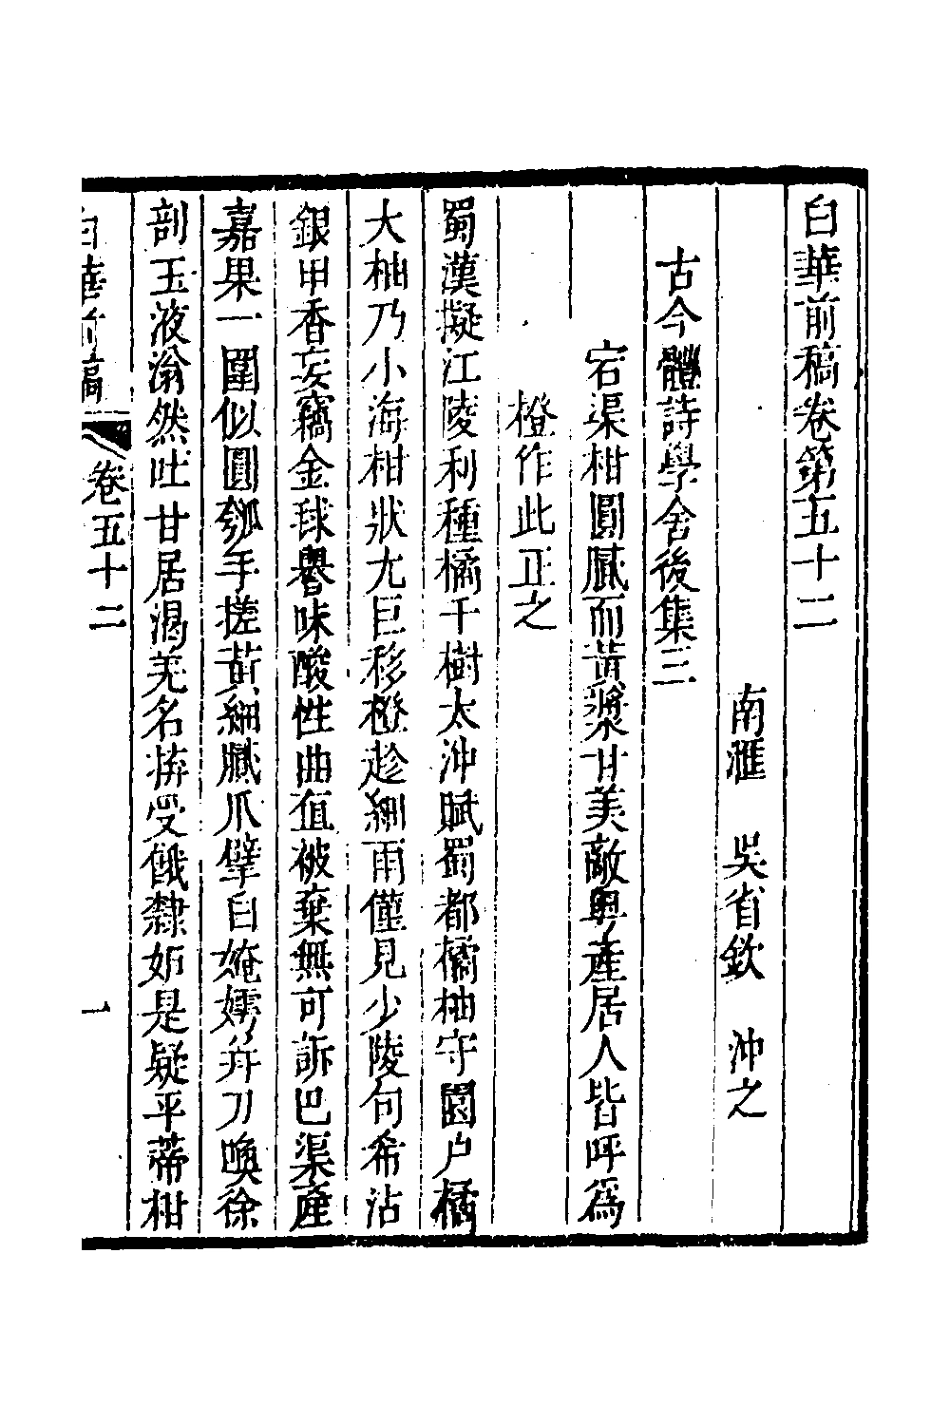 白華前稿卷第五十二
南滙 吳省欽 沖之
古今體詩學舍後集三
宕渠柑圓膩而黃漿甘美敵粵產居人皆呼爲
橙作此正之
蜀漢擬江陵利種橘千樹太沖賦蜀都橘柚守園戶橘
大柚乃小海柑狀尤巨移橙趁細雨僅見少陵句希沾
銀甲香妄竊金毬譽味酸性曲直被棄無可訴巴渠產
嘉果一圍似圓瓠手搓黃細膩爪擘白媕嫮幷刀喚徐
剖玉液滃然吐甘居渴羌名擠受傖隸妬是疑平蒂柑
白華前稿 卷五十二 一